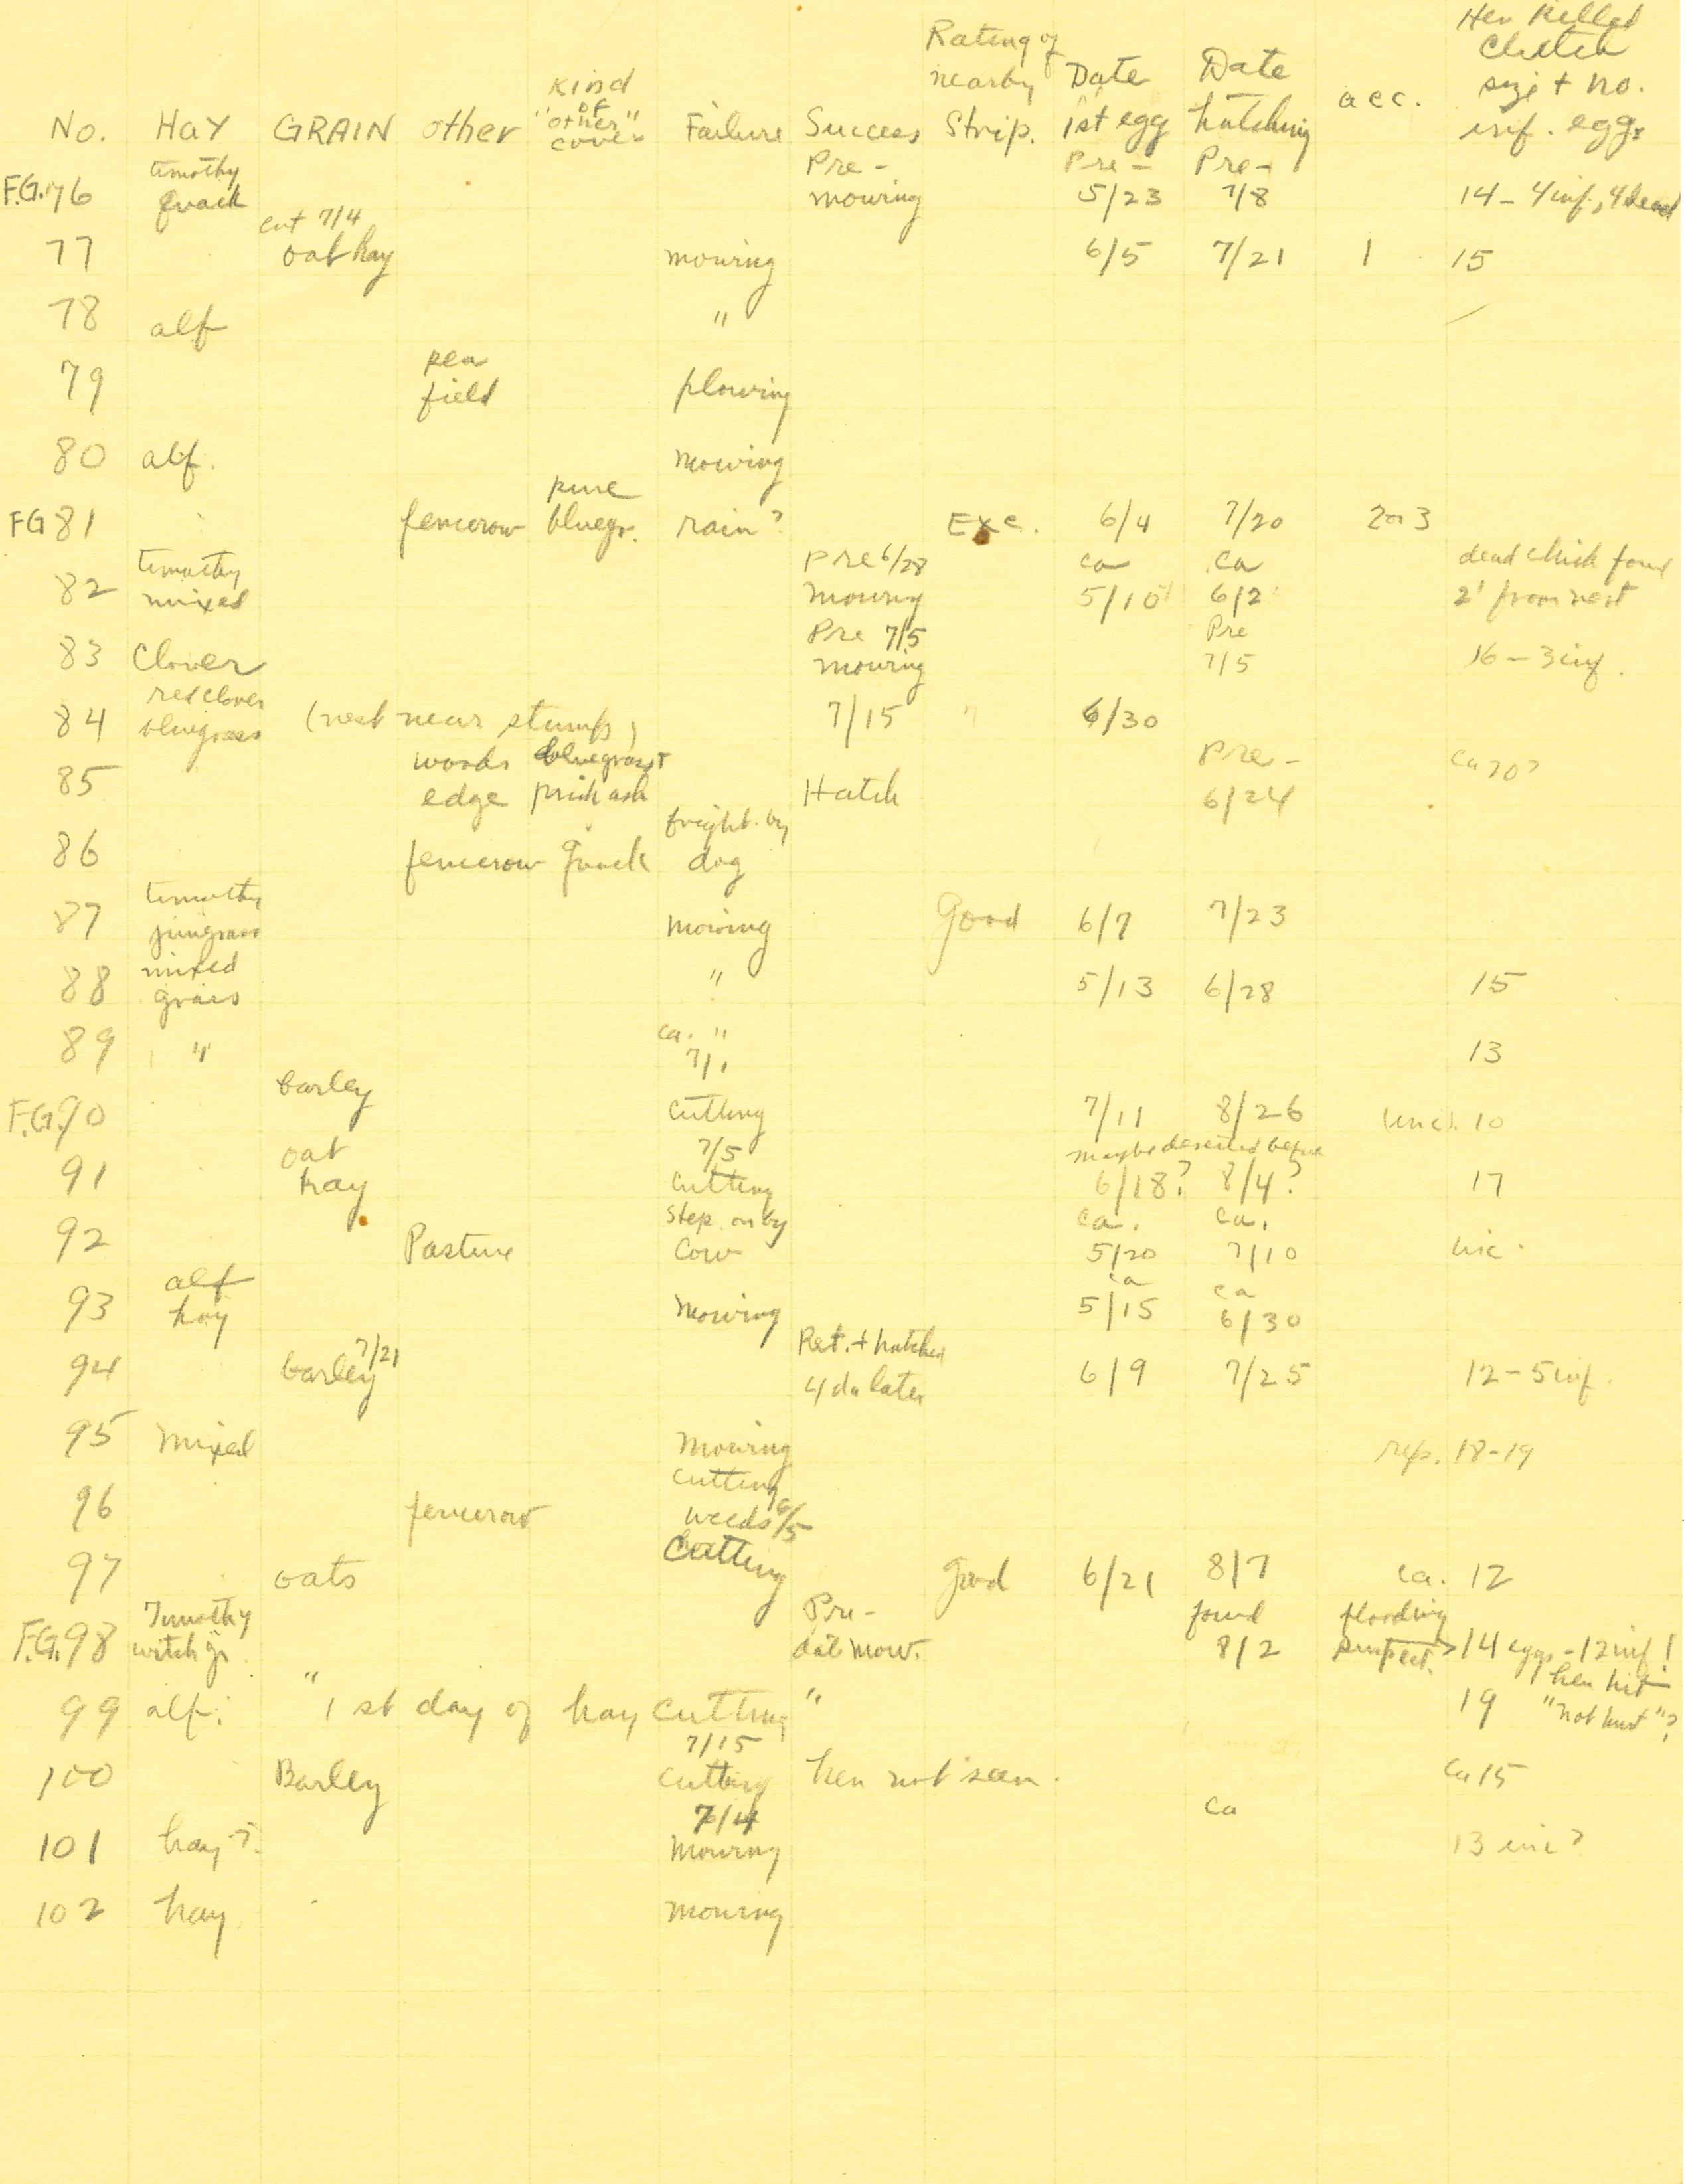 No. Hay GRAIN other Kind of "other" cover Failure Success Rating of nearby Strip. Date 1st egg Date hatching acc. Hen killed Clutch size + no. inf. eggs
F.G. 76 timothy quack Pre-mowing Pre-5/23 Pre-7/8 14 - 4 inf., 4 dead
77 cut 7/4 oat hay mowing 6/5 7/21 1 15
78 alf "
79 pea field plowing
80 alf. mowing
FG 81 fencerow pure bluegr. rain? Exc. 6/4 7/20 2 or 3
82 timothy mixed pre 6/28 mowing ca 5/10 ca 6/2 dead chick found 2' from nest
83 Clover Pre 7/5 mowing Pre 7/5 16 - 3 inf.
84 red clover bluegrass (nest near stump) 7/15 " 6/30
85 woods edge bluegrass + prick ash Hatch pre-6/24 ca 20?
86 fencerow quack fright. by dog
87 timothy junegrass mowing Good 6/7 7/23
88 mixed grass " 5/13 6/28 15
89 " ca. " 7/1 13
F.G. 90 barley cutting 7/11 8/26 (inc). 10
91 oat hay 7/5 cutting maybe deserted before 6/18? 8/4? 17
92 Pasture step. on by cow ca. 5/20 ca. 7/10 inc.
93 alf hay mowing ca 5/15 ca 6/30
94 barley 7/21 Ret. + hatched 4 da later 6/9 7/25 12 - 5 inf.
95 mixed mowing rep. 18-19
96 fencerow cutting weeds 6/5
97 oats Cutting good 6/21 8/7 ca. 12
F.G. 98 Timothy witch gr. Pre-dat mow. found 8/2 flooding suspect. > 14 eggs - 12 inf!
99 alf. " 1st day of hay cutting " 19 hen hit "not hurt"?
100 Barley 7/15 cutting hen not seen. ca 15
101 hay? 7/4 mowing ca 13 inc?
102 hay mowing